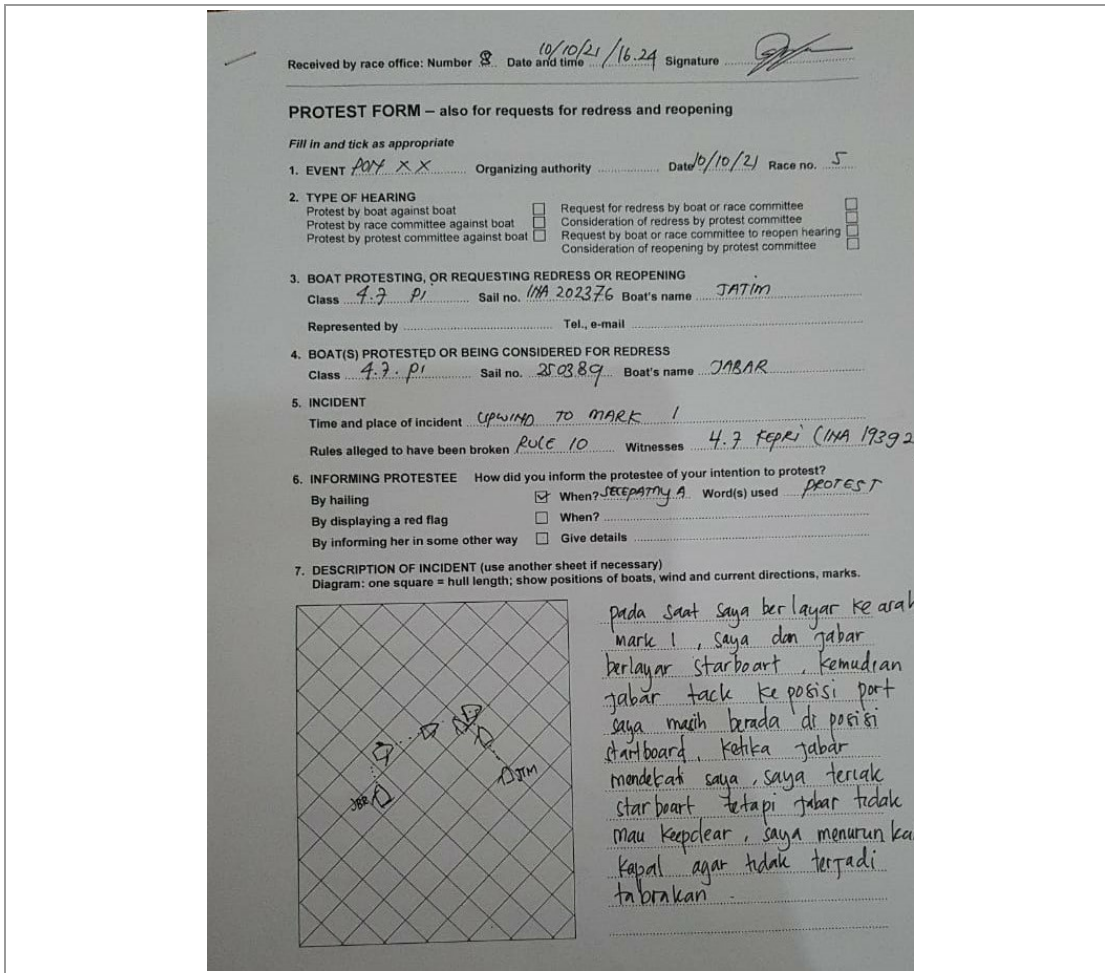 Received by race office: Number 8 Date and time 10/10/21 / 16.24 Signature
PROTEST FORM – also for requests for redress and reopening
Fill in and tick as appropriate
1. EVENT PON XX Organizing authority Date 10/10/21 Race no. 5
2. TYPE OF HEARING
Protest by boat against boat Request for redress by boat or race committee
Protest by race committee against boat Consideration of redress by protest committee
Protest by protest committee against boat Request by boat or race committee to reopen hearing
Consideration of reopening by protest committee
3. BOAT PROTESTING, OR REQUESTING REDRESS OR REOPENING
Class 4.7 Pi Sail no. INA 202376 Boat's name JATIM
Represented by Tel., e-mail
4. BOAT(S) PROTESTED OR BEING CONSIDERED FOR REDRESS
Class 4.7. Pi Sail no. 250389 Boat's name JABAR
5. INCIDENT
Time and place of incident UPWIND TO MARK 1
Rules alleged to have been broken RULE 10 Witnesses 4.7 KEPRI (INA 19392
6. INFORMING PROTESTEE How did you inform the protestee of your intention to protest?
By hailing When? SECEPATNYA Word(s) used PROTEST
By displaying a red flag When?
By informing her in some other way Give details
7. DESCRIPTION OF INCIDENT (use another sheet if necessary)
Diagram: one square = hull length; show positions of boats, wind and current directions, marks.
JBR
JTM
pada saat saya berlayar ke arah
mark 1, saya dan jabar
berlayar starboart, kemudian
jabar tack ke posisi port
saya masih berada di posisi
startboard, ketika jabar
mendekati saya, saya teriak
starboart tetapi jabar tidak
mau keepclear, saya menurunka
kapal agar tidak terjadi
tabrakan.